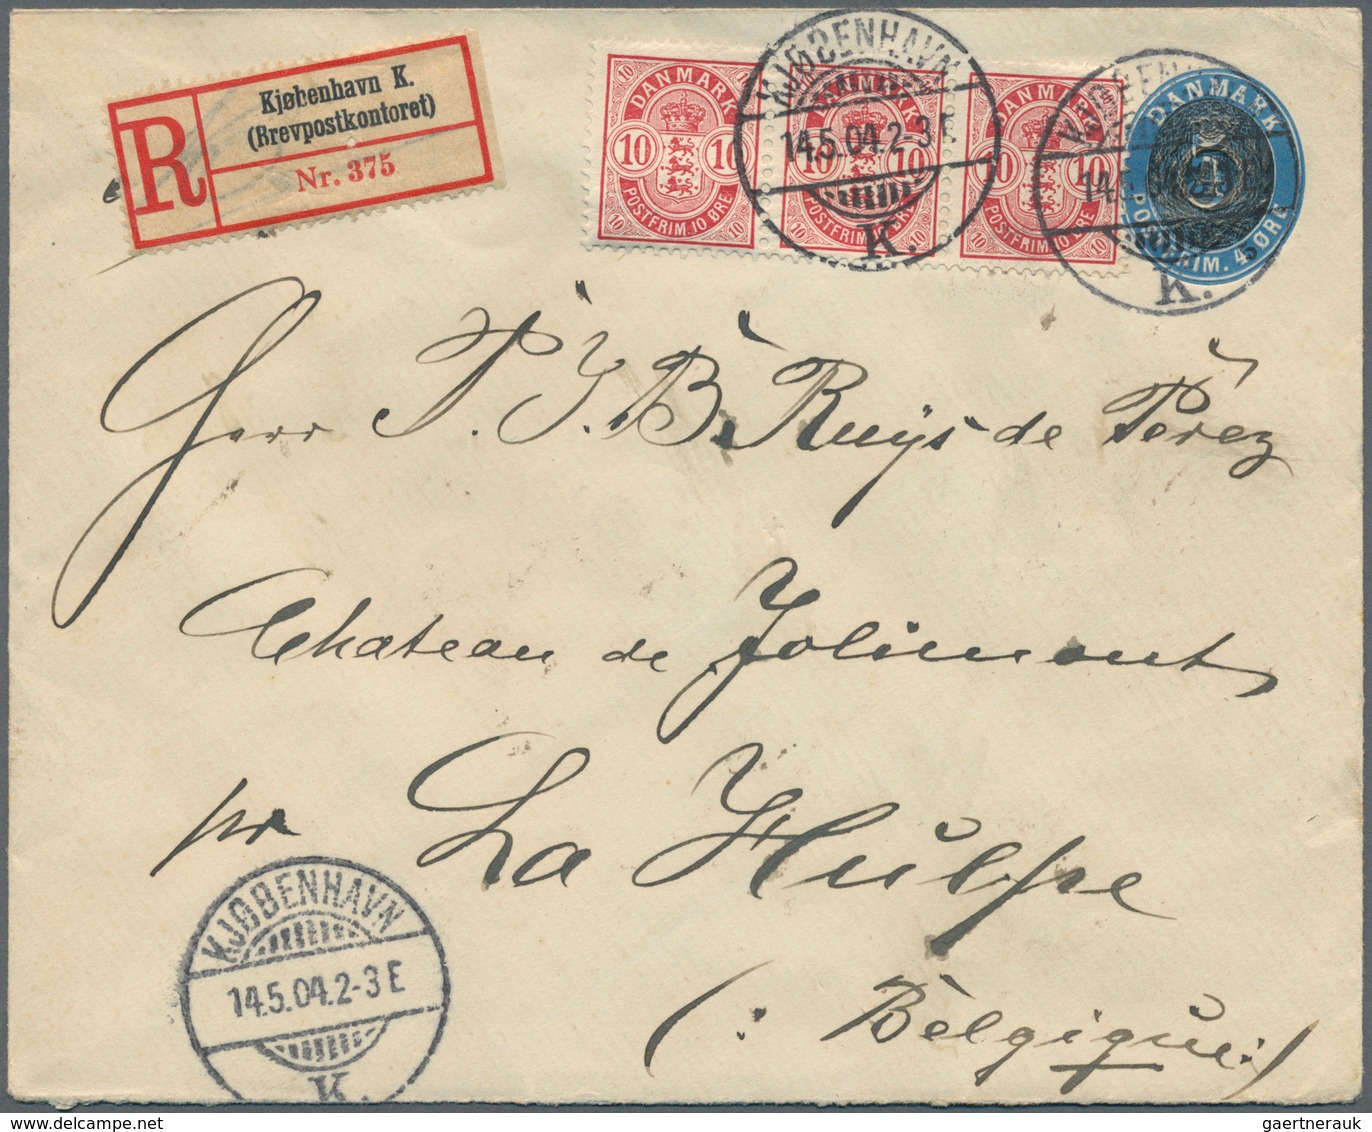 R
Kjøbenhavn K.
(Brevpostkontoret)
Nr. 375
10 DANMARK 10
10 10
10 POSTFRIM. 10 ØRE 10
DANMARK
10
POSTFRIM. 10 ØRE
10 DANMARK 10
10 10
POSTFRIM. 10 ØRE 10
KJØBENHAVN
14.5.04.2-3 E
K.
DANMARK
5
POSTFRIM. 4 ØRE
K.
Herr P. J. B. Ruÿs de Perez
Chateau de Jolimont
pr La Hulpe
(: Belgique :)
KJØBENHAVN
14.5.04.2-3 E
K.
gaertnerauk